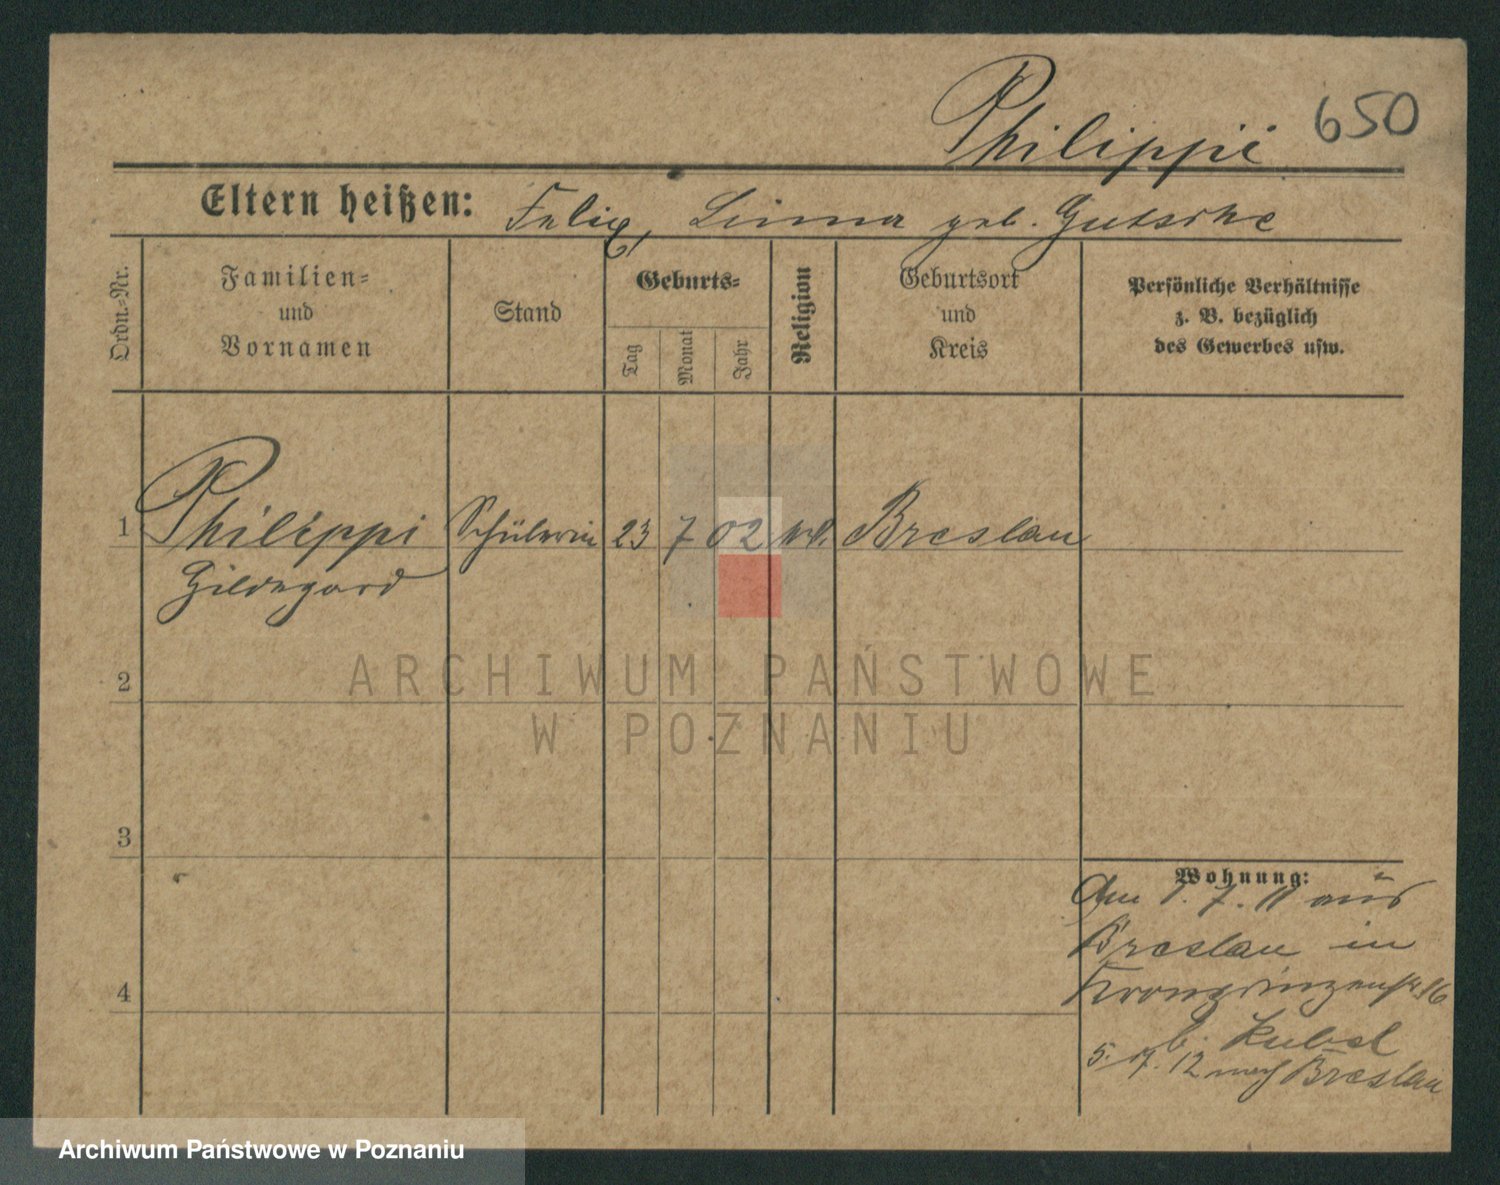 Philippi 650
Eltern heißen: Felix, Linna geb. Gutsche
Ordn.-Nr.
Familien-
und
Vornamen
Stand
Geburts-
Tag
Monat
Jahr
Religion
Geburtsort
und
Kreis
Persönliche Verhältnisse
z. B. bezüglich
des Gewerbes usw.
1 Philippi Schülerin 23 7 02 Breslau
Hildegard
2
3
4
Wohnung:
Am 1. 7. 11 aus
Breslau in
Kronprinzenstr. 86
b. Kubal
5. 7. 12 nach Breslau
ARCHIWUM PAŃSTWOWE
W POZNANIU
Archiwum Państwowe w Poznaniu